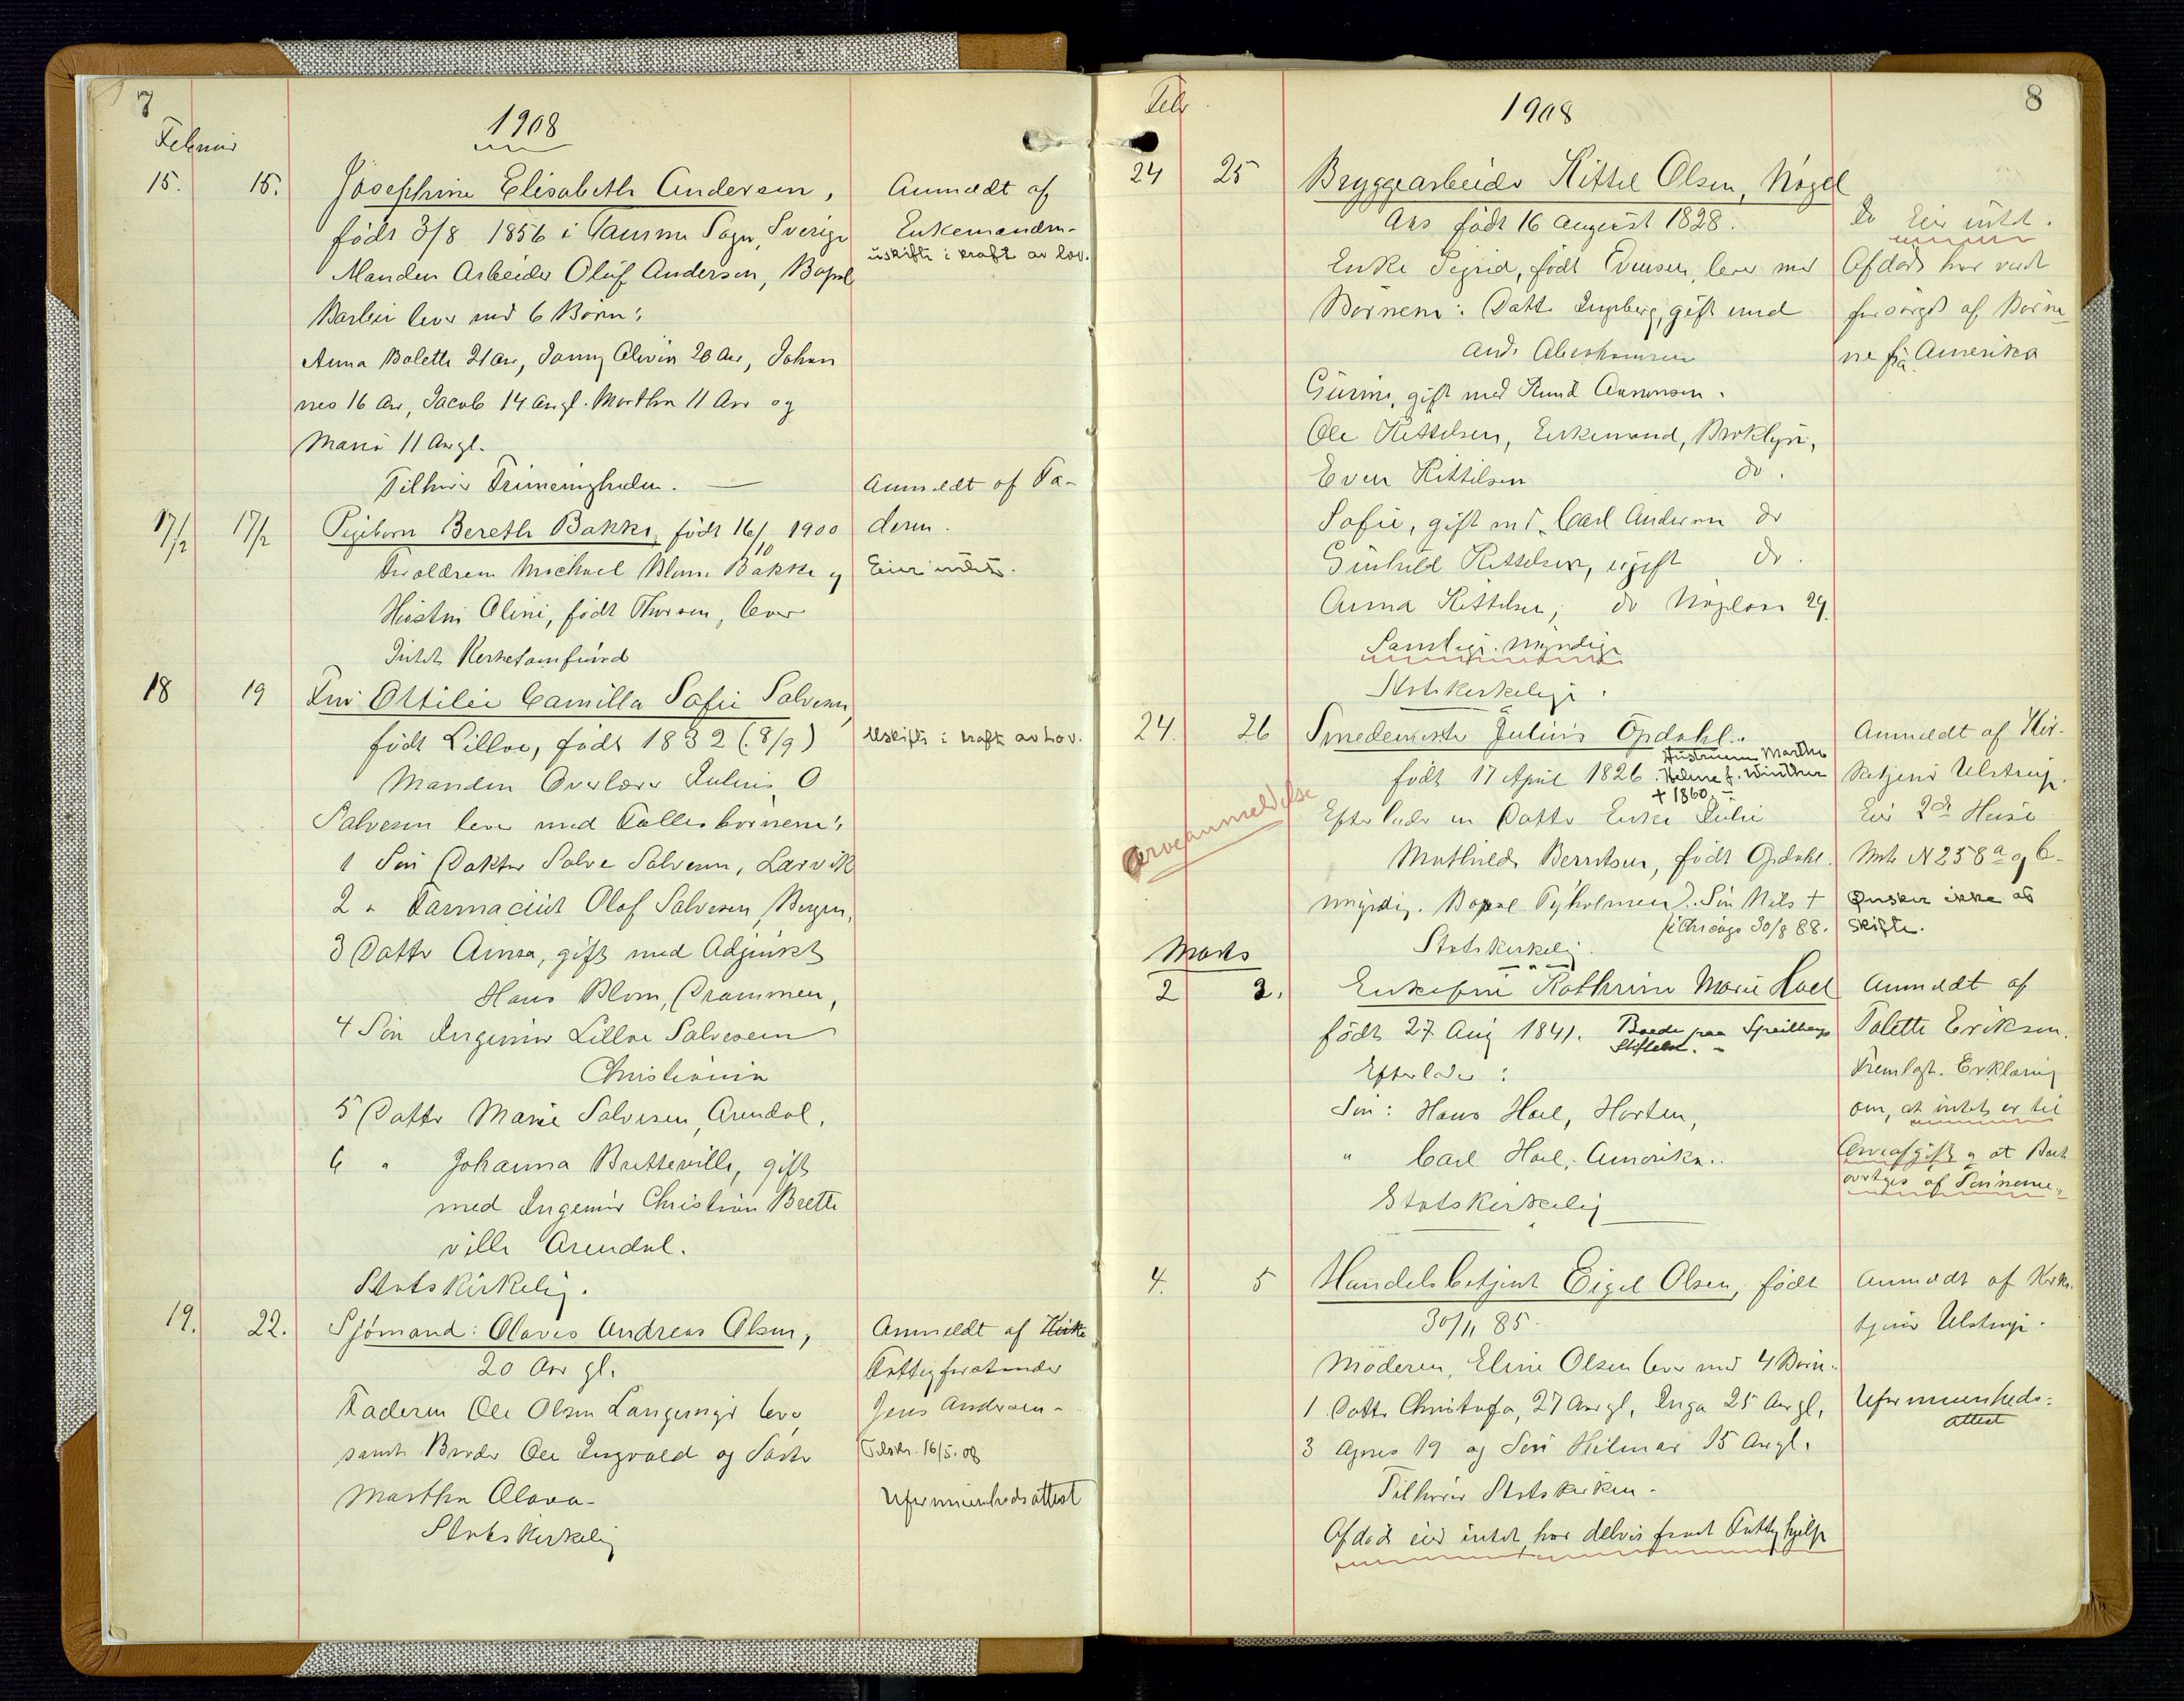 7
1908
Februar
15. 15. Josephine Elisabeth Andersen, Anmeldt af
født 3/8 1856 i Sogn, Sverige Enkemanden
uskifte i kraft av lov.
Manden Arbeider Oluf Andersen, Bopæl
Barbu lever med 6 Børn:
Anna Bolette 21 Aar, Alvin 20 Aar, Johan
nes 16 Aar, Jacob 14 Aar gl. Martha 11 Aar og
Marie 11 Aar gl.
Tilhører Frimenigheden. — Anmeldt af Fa-
17/2 17/2 Pigebarn Bereth Bakke, født 16/10 1900 deren.
Forældrene Michael Blom Bakke og Eier intet.
Hustru Oline, født Thorsen, lever
Intet Kirkesamfund
18 19 Fru Ottilie Camilla Sofie Salvesen,
født Lilloe, født 1832 (8/9) Uskifte i kraft av Lov.
Manden Overlærer Julius O
Salvesen lever med Fællesbørnene:
1 Søn Doktor Salve Salvesen, Larvik
2 " Farmaceut Olaf Salvesen, Bergen,
3 Datter Anna, gift med Adjunkt
Hans Blom, Drammen,
4 Søn Ingeniør Lilloe Salvesen
Christiania
5 Datter Marie Salvesen, Arendal,
6 " Johanna Bretteville, gift
med Ingeniør Christian Brette
ville Arendal.
Statskirkelig.
19. 22. Sjømand: Olaves Andreas Olsen, Anmeldt af Kirke
20 Aar gl. Fattigforstander
Faderen Ole Olsen Langemyr lever Jens Andersen-
samt Broder Ole Ingvald og Søster 16/5.08
Martha Olava- Uformuenhedsattest
Statskirkelig
8
Febr
1908
24 25 Bryggearbeider Kittel Olsen, Nøgel
Aas født 16 August 1828. Do Eier intet.
Enke Sigrid, født Evensen, lever med Afdøde har vært
Børnene: Datter Ingeborg, gift med forsørget af Børne
And. Abrahamsen ne fra Amerika
Gurine, gift med Knud Aanonsen.
Ole Kittelsen, Enkemand, Broklyn,
Even Kittelsen do.
Sofie, gift med Carl Andersen do
Gunhild Kittelsen, ugift do.
Anna Kittelsen, do 29.
Samtlige myndige
Statskirkelige.
24. 26 Smedemester Julius Opdahl. Anmeldt af Kir-
Hustruen Marthe
født 17 April 1826. Helene f. Winther ketjener Ulstrup.
+ 1860. –
Arveanmeldelse
Efterlader en Datter Enke Julie Eier 2de Huse
Mathilde Berntsen, født Opdahl. Mtr N 258a og b-
myndig. Bopæl Tyholmen). Søn Nils + Ønsker ikke at
i Chicago 30/8 88. skifte.
Statskirkelig.
Marts
2 3. Enkefru Kathrine Marie Hoel Anmeldt af
født 27 Aug 1841. Boede paa Speilbergs Tolette Eriksen.
Stiftelse. –
Efterlader: Fremlagt Erklæring
Søn: Hans Hoel, Horten, om, at intet er til
" Carl Hoel, Amerika.. Arveafgift og at Boet
overtages af Sønnerne.
Statskirkelig
4. 5 Handelsbetjent Eigel Olsen, født Anmeldt af Kirke-
30/11 85- tjener Ulstrup.
Moderen, Eline Olsen lever med 4 Børn.
1 Datter Christofa, 27 Aar gl, Inga 25 Aar gl, Uformuenheds-
attest
3 Agnes 19 og Søn Hilmar 15 Aar gl.
Tilhører Statskirken.
Afdøde eier intet, har delvis faaet Fattighjelp